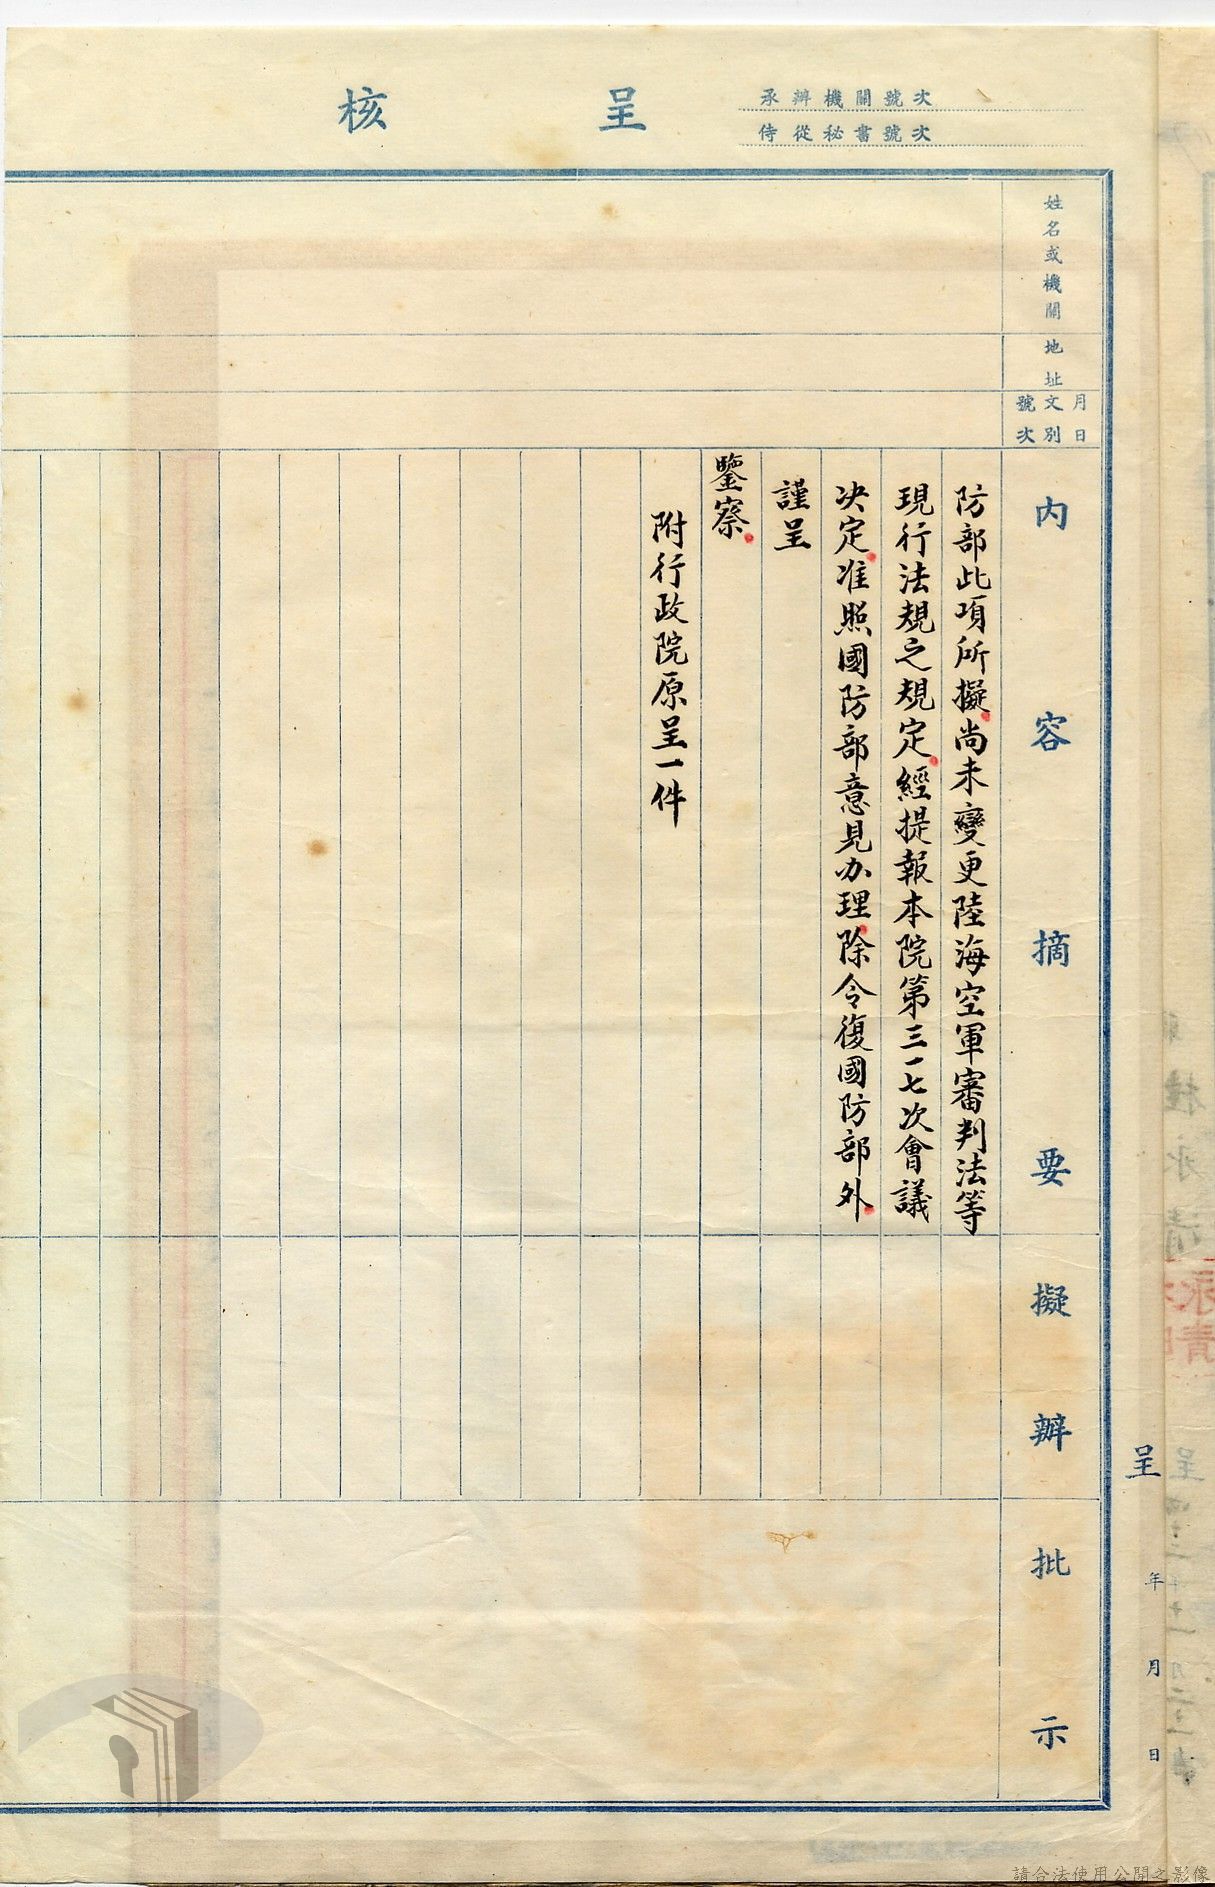 呈核
承辦機關號次
侍從秘書號次
姓名或機關
地址
月日
文別
號次
內容摘要
擬辦
批示
防部此項所擬尚未變更陸海空軍審判法等
現行法規之規定經提報本院第三一七次會議
決定准照國防部意見办理除令復國防部外
謹呈
鑒察
附行政院原呈一件
呈 年 月 日
請合法使用公開之影像